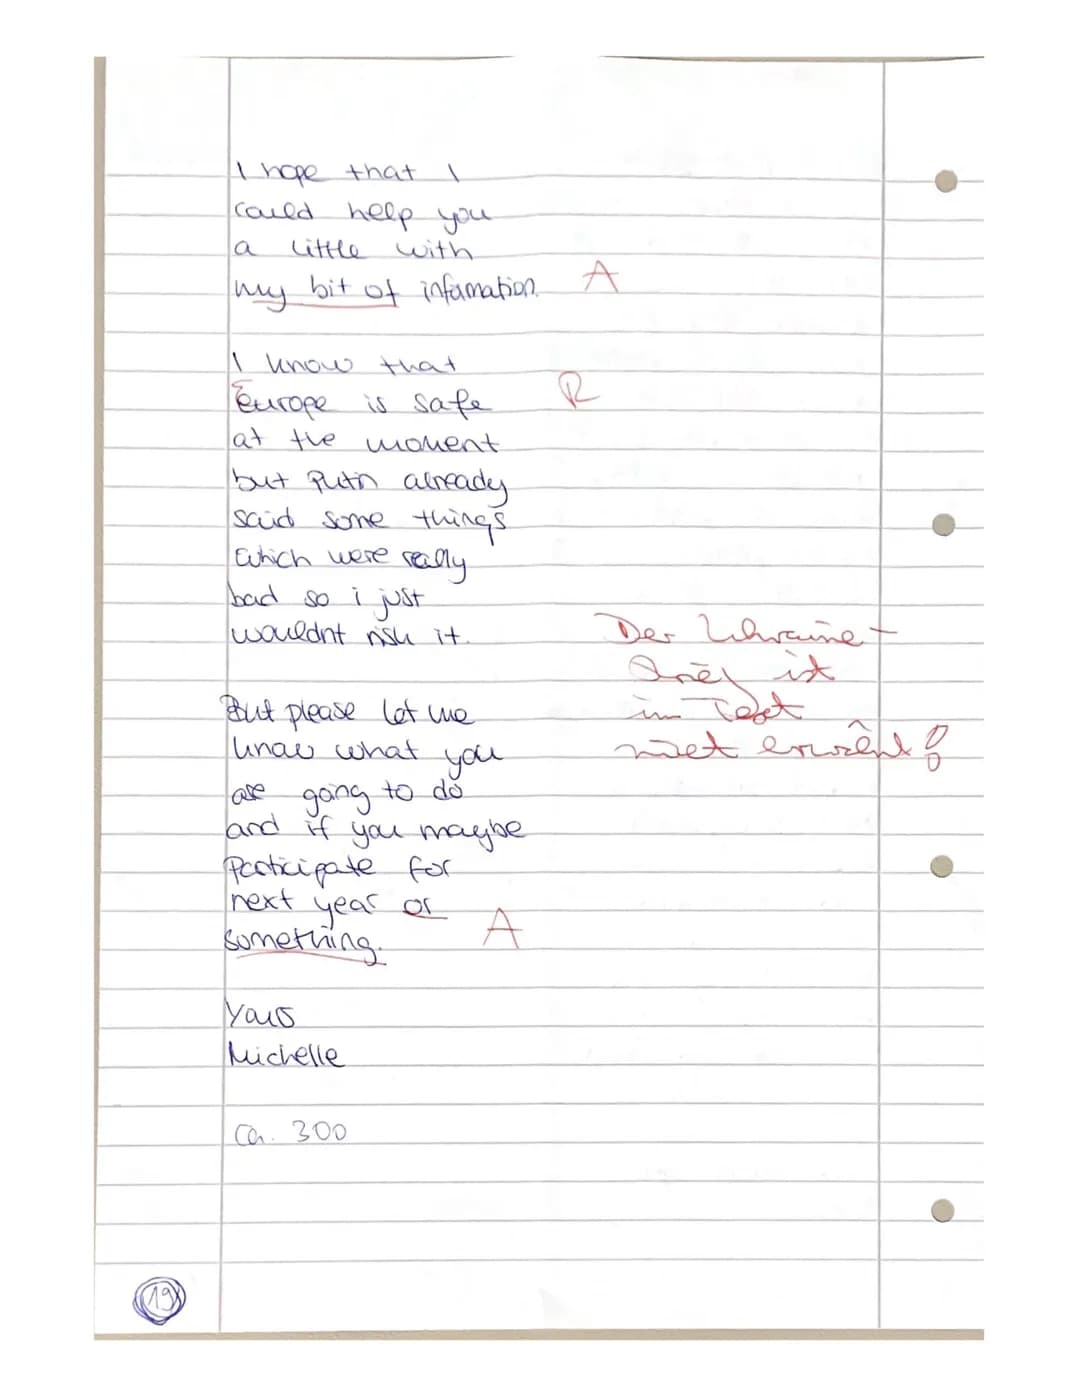 I hope that I
could help you
a little with
my bit of infamation. A
I know that
Europe is safe R
at the moment
but Putin already
said some things
which were really
bad so i just
wouldnt risk it.
Der Ukraine-
ist
im Text
But please let me
know what you
are going to do
and if you maybe
Participate for
next year or
something. A
Yours
Michelle
Ca. 300
19